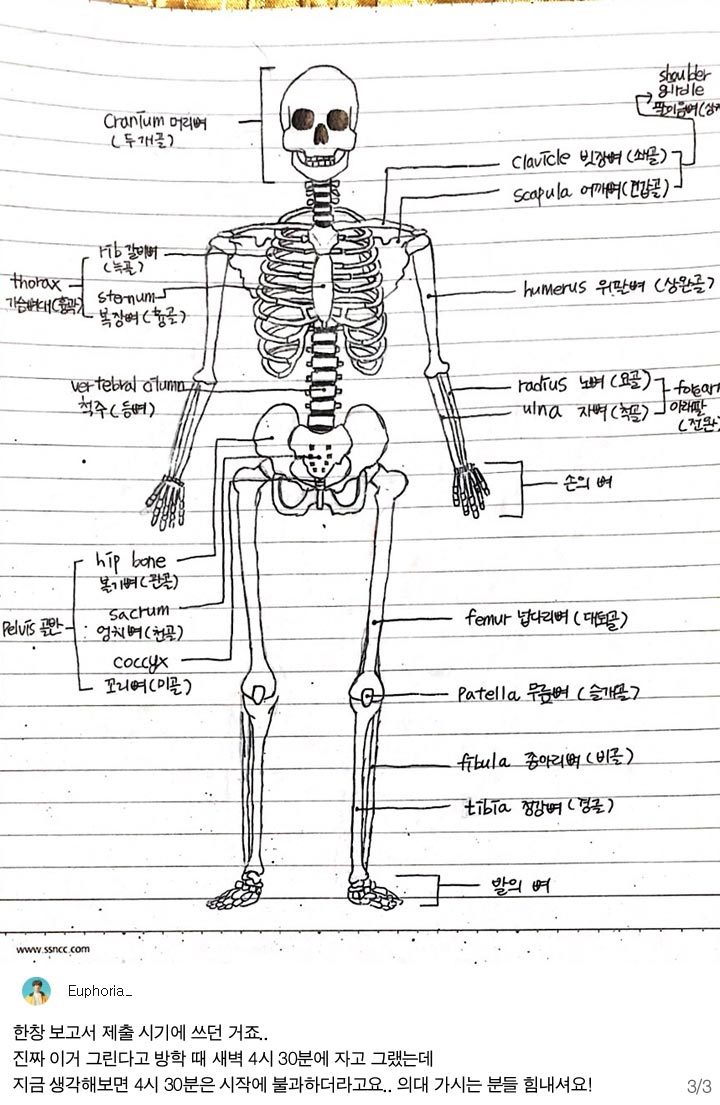 shoulder
girdle
cranium 머리뼈
(두개골)
clavicle 빗장뼈 (쇄골)
scapula 어깨뼈 (견갑골)
rib 갈비뼈
(늑골)
thorax
가슴뼈대(흉곽)
sternum
복장뼈(흉골)
humerus 위팔뼈 (상완골)
vertebral clumn
척주(등뼈)
radius 노뼈 (요골)
ulna 자뼈 (척골)
아래팔
(전완)
손의 뼈
hip bone
볼기뼈(관골)
sacrum
엉치뼈(천골)
Pelvis 골반
coccyx
꼬리뼈(미골)
femur 넙다리뼈 (대퇴골)
patella 무릎뼈 (슬개골)
fibula 종아리뼈 (비골)
tibia 정강뼈 (경골)
발의 뼈
www.ssncc.com
Euphoria_
한창 보고서 제출 시기에 쓰던 거죠..
진짜 이거 그린다고 방학 때 새벽 4시 30분에 자고 그랬는데
지금 생각해보면 4시 30분은 시작에 불과하더라고요.. 의대 가시는 분들 힘내셔요!
3/3